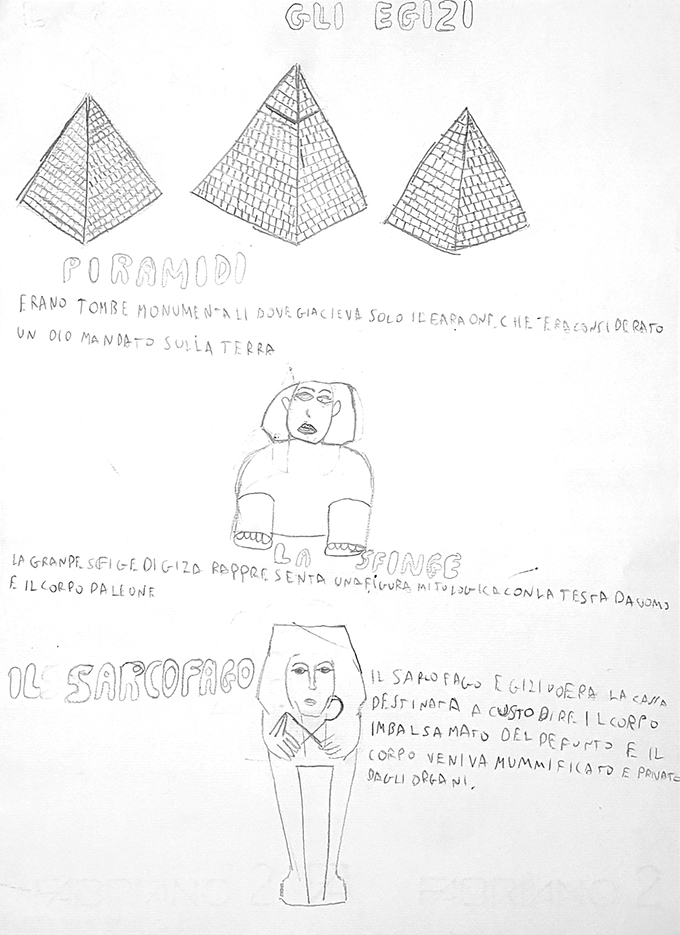 GLI EGIZI
PIRAMIDI
ERANO TOMBE MONUMENTALI DOVE GIACIEVA SOLO IL FARAONE, CHE ERA CONSIDERATO
UN DIO MANDATO SULLA TERRA
LA SFINGE
LA GRANDE SFIGE DI GIZA RAPPRESENTA UNA FIGURA MITOLOGICA CON LA TESTA DA UOMO
E IL CORPO DA LEONE
IL SARCOFAGO
IL SARCOFAGO EGIZI ERA LA CASSA
DESTINATA A CUSTODIRE IL CORPO
IMBALSAMATO DEL DEFUNTO E IL
CORPO VENIVA MUMMIFICATO E PRIVATO
DAGLI ORGANI.
FABRIANO 2 FABRIANO 2